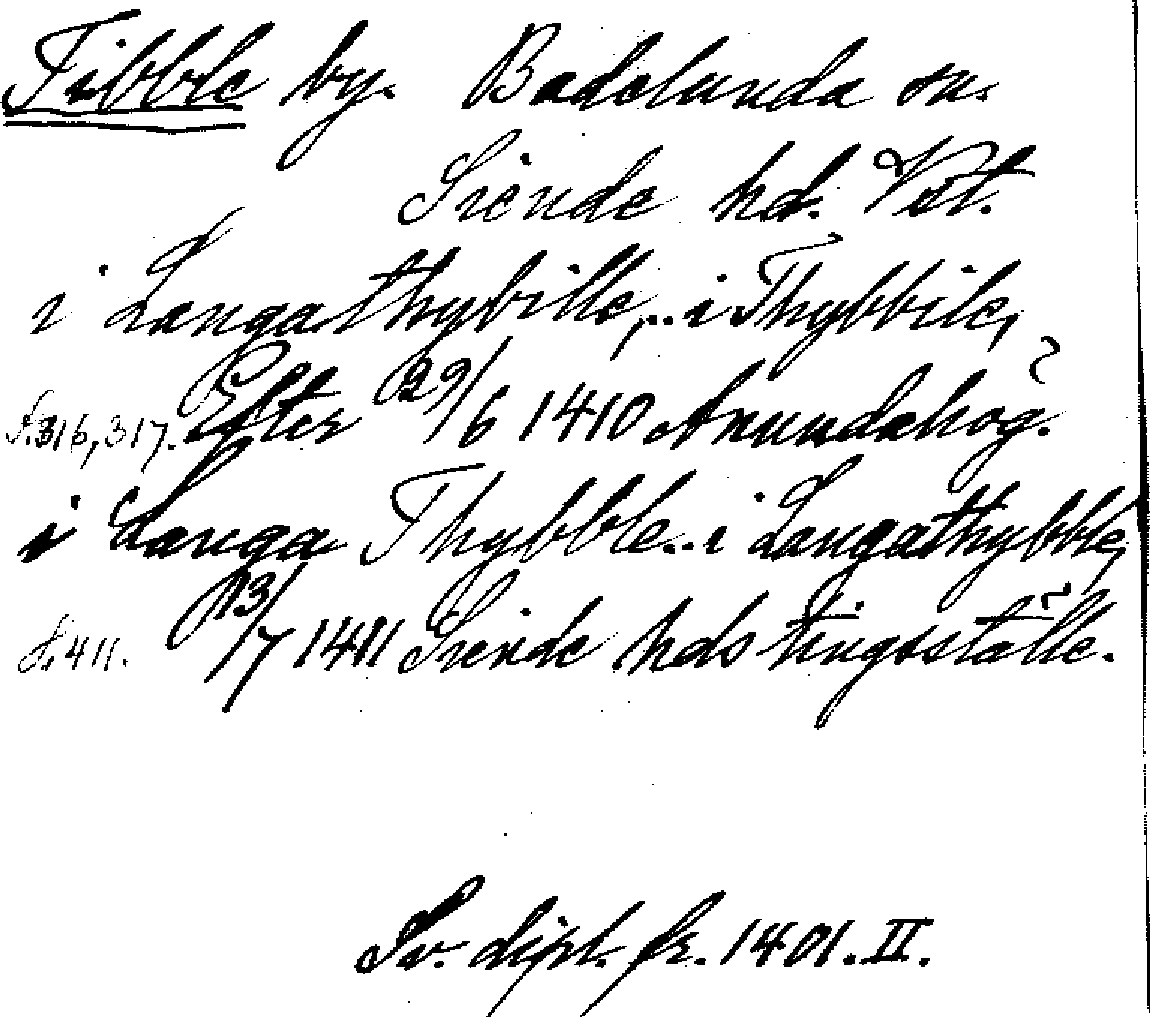 Tibble by. Badelunda sn.
Siende hd. Vst.
i Langathybille, .. i Thybbile,
S. 316, 317. Efter 29/6 1410 Anundahög.
i Langa Thybble .. i Langathybble,
S. 411. 13/7 1411 Siende hds tingsställe.
Sv. dipl. fr. 1401. II.